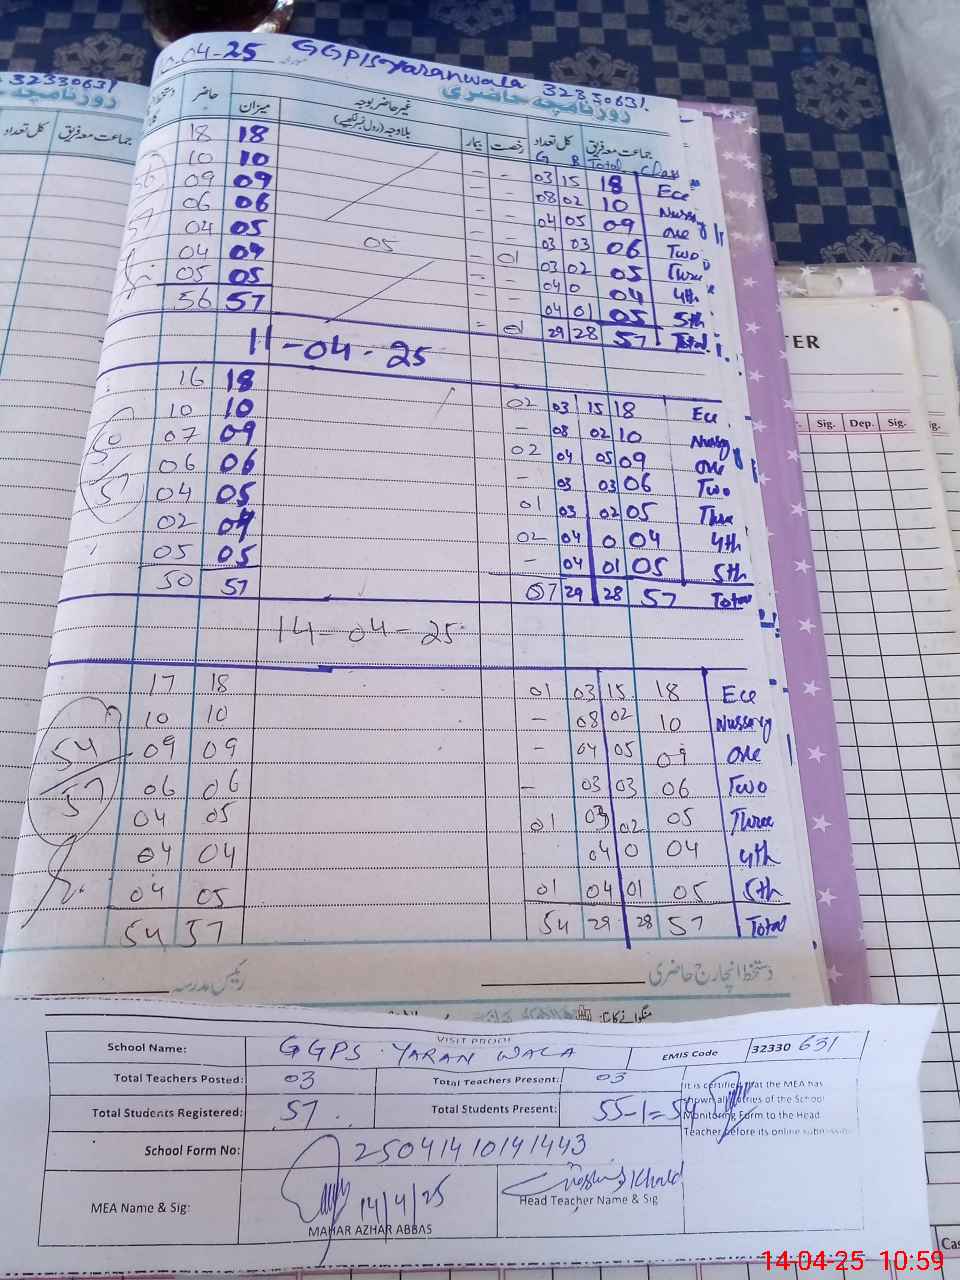 04-25 GGPS Yaranwala 32330631
روزنامچہ حاضری
جماعت معہ فریق کل تعداد رخصت بیمار غیر حاضر بوجہ بلاوجہ (رول نمبر لکھیے) میزان حاضر
G B Total Class
18 18 – – 03 15 18 Ece
10 10 – – 08 02 10 Nursery
09 09 – – 04 05 09 One
06 06 – – 03 03 06 Two
04 05 05 – 01 03 02 05 Three
04 04 – – 04 0 04 4th
05 05 – – 04 01 05 5th
56 57 – 01 29 28 57 Total
11-04-25
16 18 02 03 15 18 Ece
10 10 – 08 02 10 Nursery
07 09 02 04 05 09 One
06 06 – 03 03 06 Two
04 05 01 03 02 05 Three
02 04 02 04 0 04 4th
05 05 – 04 01 05 5th
50 57 57 29 28 57 Total
50
57
14-04-25
17 18 01 03 15 18 Ece
10 10 – 08 02 10 Nursery
09 09 – 04 05 09 One
06 06 – 03 03 06 Two
04 05 01 03 02 05 Three
04 04 04 0 04 4th
04 05 01 04 01 05 5th
54 57 54 29 28 57 Total
54
57
دستخط انچارج حاضری رئیس مدرسہ
VISIT PROOF
School Name: GGPS YARAN WALA EMIS Code 32330 631
Total Teachers Posted: 03 Total Teachers Present: 03
Total Students Registered: 57 Total Students Present: 55-1=54
It is certified that the MEA has
shown all entries of the School
Monitoring Form to the Head
Teacher before its online submission
School Form No: 25041410141443
MEA Name & Sig: 14/4/25
MAHAR AZHAR ABBAS
Head Teacher Name & Sig
روزنامچہ
32330631
جماعت معہ فریق کل تعداد
TER
Sig. Dep. Sig.
14-04-25 10:59